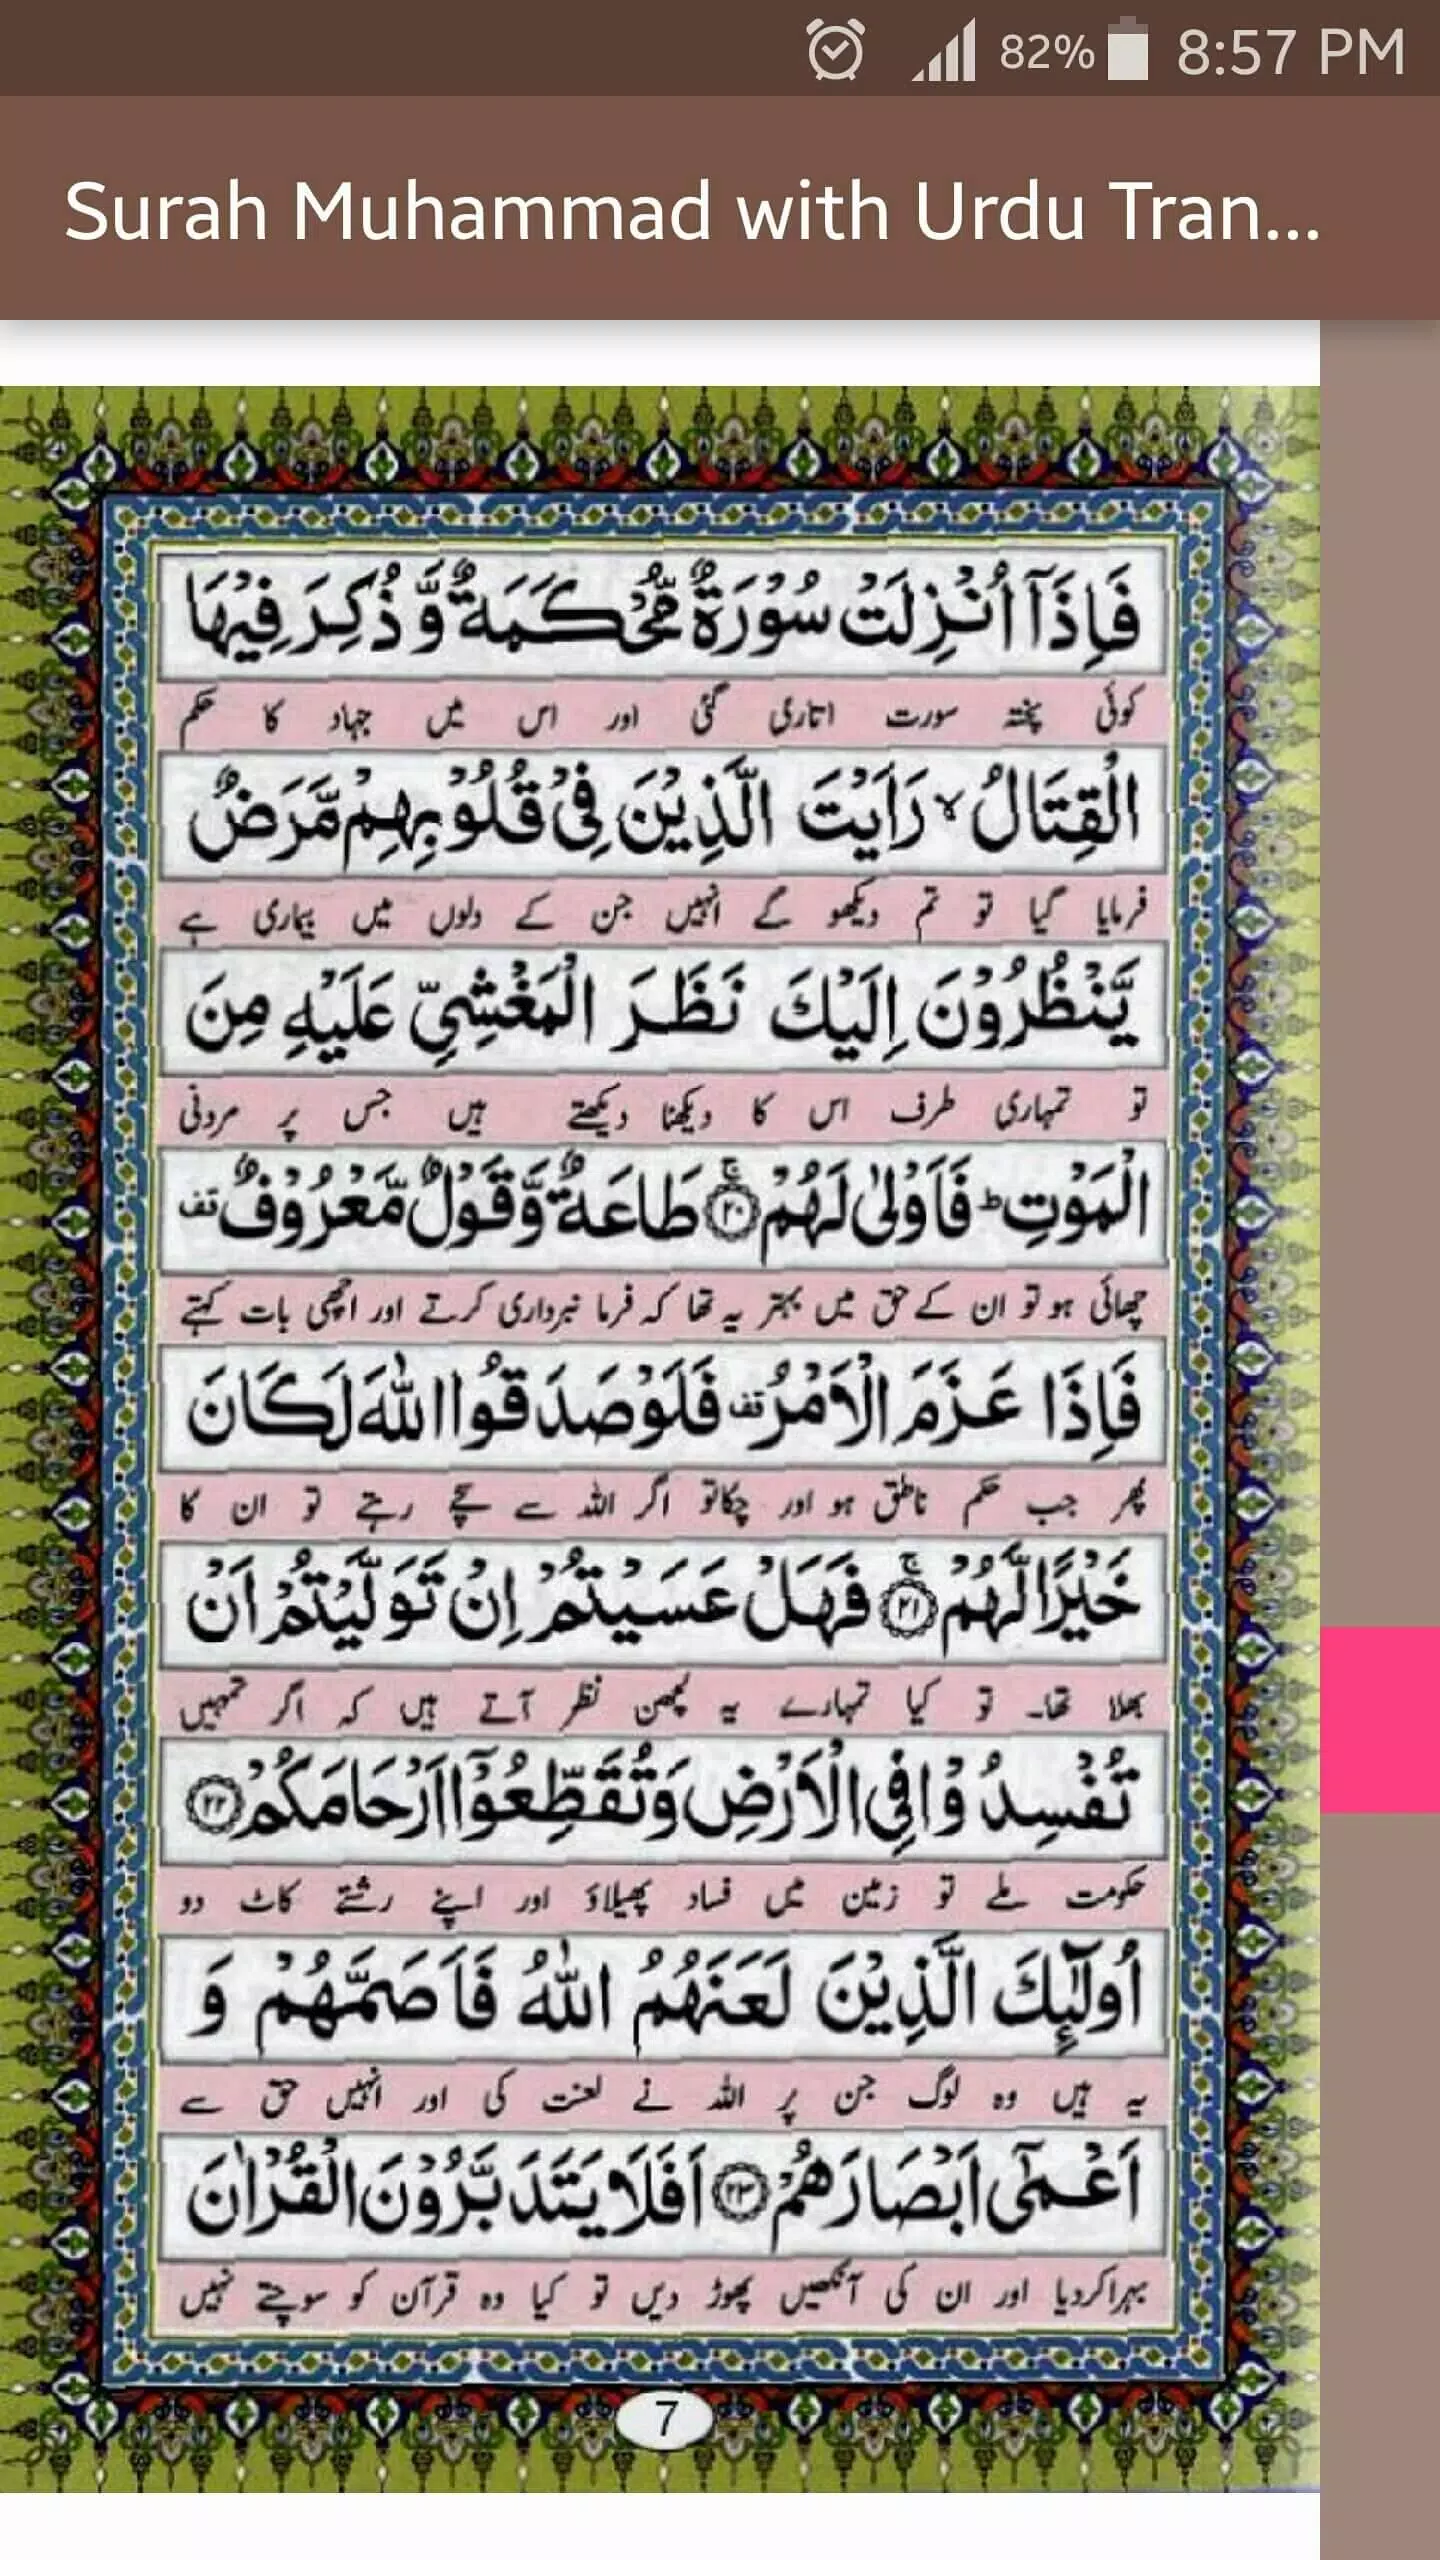 82% 8:57 PM
Surah Muhammad with Urdu Tran...
فَاِذَآ اُنْزِلَتْ سُوْرَةٌ مُّحْكَمَةٌ وَّ ذُكِرَ فِيْهَا
کوئی پختہ سورت اتاری گئی اور اس میں جہاد کا حکم
الْقِتَالُ ۙ رَاَيْتَ الَّذِيْنَ فِيْ قُلُوْبِهِمْ مَّرَضٌ
فرمایا گیا تو تم دیکھو گے انہیں جن کے دلوں میں بیماری ہے
يَّنْظُرُوْنَ اِلَيْكَ نَظَرَ الْمَغْشِيِّ عَلَيْهِ مِنَ
تو تمہاری طرف اس کا دیکھنا دیکھتے ہیں جس پر مردنی
الْمَوْتِ ؕ فَاَوْلٰى لَهُمْ ۚ۝۲۰ طَاعَةٌ وَّقَوْلٌ مَّعْرُوْفٌ قف
چھائی ہو تو ان کے حق میں بہتر یہ تھا کہ فرما نبرداری کرتے اور اچھی بات کہتے
فَاِذَا عَزَمَ الْاَمْرُ قف فَلَوْ صَدَقُوا اللّٰهَ لَكَانَ
پھر جب حکم ناطق ہو اور چکاتو اگر اللہ سے سچے رہتے تو ان کا
خَيْرًا لَّهُمْ ۚ۝۲۱ فَهَلْ عَسَيْتُمْ اِنْ تَوَلَّيْتُمْ اَنْ
بھلا تھا۔ تو کیا تمہارے یہ لچھن نظر آتے ہیں کہ اگر تمہیں
تُفْسِدُوْا فِي الْاَرْضِ وَتُقَطِّعُوْٓا اَرْحَامَكُمْ ۝۲۲
حکومت ملے تو زمین میں فساد پھیلاؤ اور اپنے رشتے کاٹ دو
اُولٰٓئِكَ الَّذِيْنَ لَعَنَهُمُ اللّٰهُ فَاَصَمَّهُمْ وَ
یہ ہیں وہ لوگ جن پر اللہ نے لعنت کی اور انہیں حق سے
اَعْمٰٓى اَبْصَارَهُمْ ۝۲۳ اَفَلَا يَتَدَبَّرُوْنَ الْقُرْاٰنَ
بہراکردیا اور ان کی آنکھیں پھوڑ دیں تو کیا وہ قرآن کو سوچتے نہیں
7